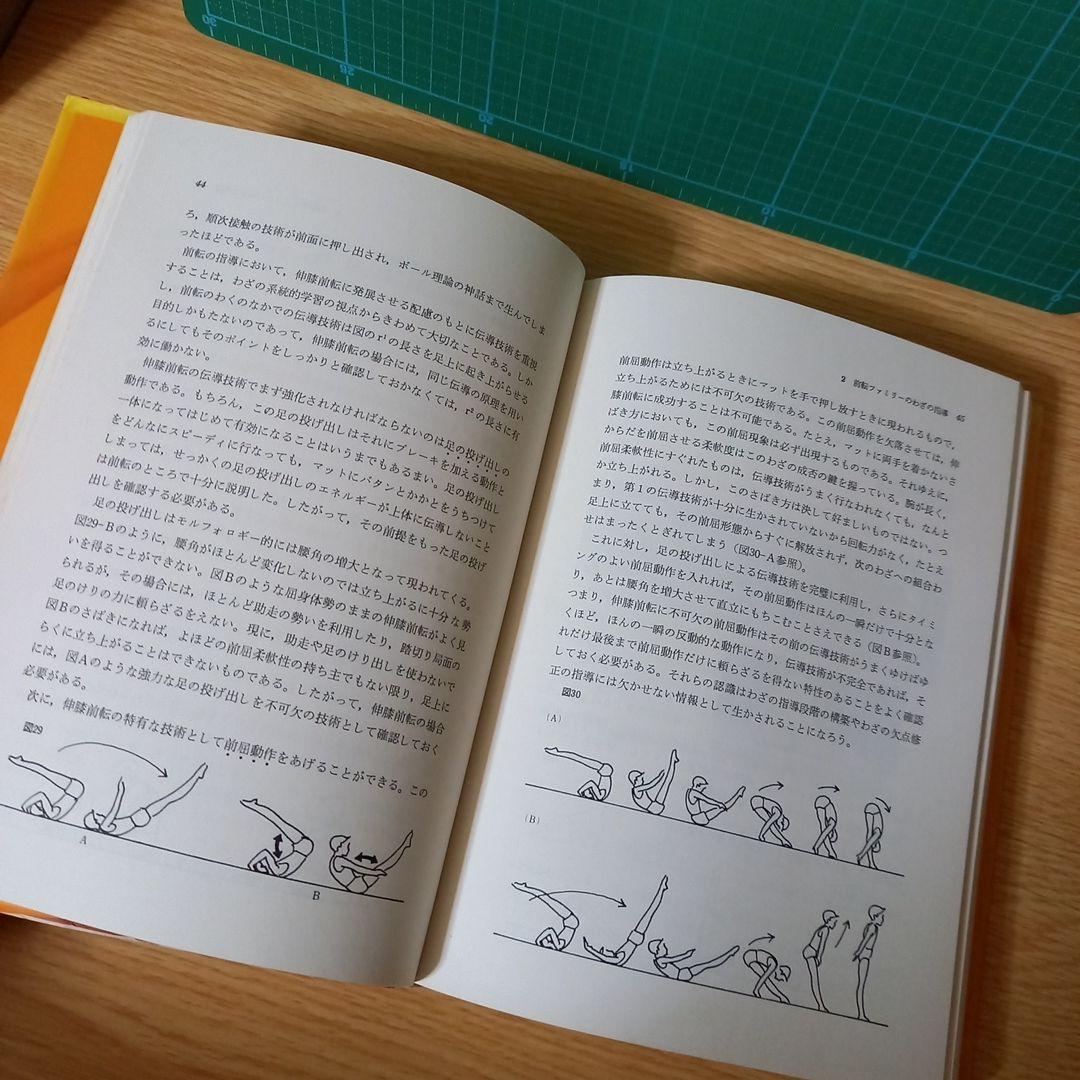 44
ろ，順次接触の技術が前面に押し出され，ボール理論の神話まで生んでしま
ったほどである。
前転の指導において，伸膝前転に発展させる配慮のもとに伝導技術を重視
することは，わざの系統的学習の視点からきわめて大切なことである。しか
し，前転のわくのなかでの伝導技術は図のr²の長さを足上に起き上がらせる
目的しかもたないのであって，伸膝前転の場合には，同じ伝導の原理を用い
るにしてもそのポイントをしっかりと確認しておかなくては，r²の長さに有
効に働かない。
伸膝前転の伝導技術でまず強化されなければならないのは足の投げ出しの
動作である。もちろん，この足の投げ出しはそれにブレーキを加える動作と
一体になってはじめて有効になることはいうまでもあるまい。足の投げ出し
をどんなにスピーディに行なっても，マットにバタンとかかとをうちつけて
しまっては，せっかくの足の投げ出しのエネルギーが上体に伝導しないこと
は前転のところで十分に説明した。したがって，その前提をもった足の投げ
出しを確認する必要がある。
足の投げ出しはモルフォロギー的には腰角の増大となって現われてくる。
図29-Bのように，腰角がほとんど変化しないのでは立ち上がるに十分な勢
いを得ることができない。図Bのような屈身体勢のままの伸膝前転がよく見
られるが，その場合には，ほとんど助走の勢いを利用したり，踏切り局面の
足のけりの力に頼らざるをえない。現に，助走や足のけり出しを使わないで
図Bのさばきになれば，よほどの前屈柔軟性の持ち主でもない限り，足上に
らくに立ち上がることはできないものである。したがって，伸膝前転の場合
には，図Aのような強力な足の投げ出しを不可欠の技術として確認しておく
必要がある。
次に，伸膝前転の特有な技術として前屈動作をあげることができる。この
図29
A
B
2 前転ファミリーのわざの指導 45
前屈動作は立ち上がるときにマットを手で押し放すときに現われるもので，
立ち上がるためには不可欠の技術である。この前屈動作を欠落させては，伸
膝前転に成功することは不可能である。たとえ，マットに両手を着かないさ
ばき方においても，この前屈現象は必ず出現するものである。それゆえに，
からだを前屈させる柔軟度はこのわざの成否の鍵を握っている。腕が長く，
前屈柔軟性にすぐれたものは，伝導技術がうまく行なわれなくても，なんと
か立ち上がれる。しかし，このさばき方は決して好ましいものではない。つ
まり，第1の伝導技術が十分に生かされていないから回転力がなく，たとえ
足上に立てても，その前屈形態からすぐに解放されず，次のわざへの組合わ
せはまったくとぎれてしまう（図30-A参照）。
これに対し，足の投げ出しによる伝導技術を完璧に利用し，さらにタイミ
ングのよい前屈動作を入れれば，その前屈動作はほんの一瞬だけで十分とな
り，あとは腰角を増大させて直立にもちこむことさえできる（図B参照）。
つまり，伸膝前転に不可欠の前屈動作はその前の伝導技術がうまくゆけばゆ
くほど，ほんの一瞬の反動的な動作になり，伝導技術が不完全であれば，そ
れだけ最後まで前屈動作だけに頼らざるを得ない特性のあることをよく確認
しておく必要がある。それらの認識はわざの指導段階の構築やわざの欠点修
正の指導には欠かせない情報として生かされることになろう。
図30
(A)
(B)
30
25
20
15
10
0